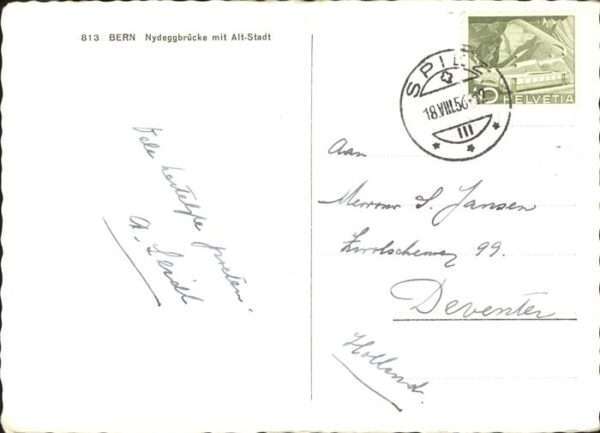 813 BERN Nydeggbrücke mit Alt-Stadt
Vele hartelijke groeten.
SPIEZ
18.VIII.56-12
III
5
HELVETIA
Aan
Mevrouw S. Jansen
99.
Deventer
Holland.